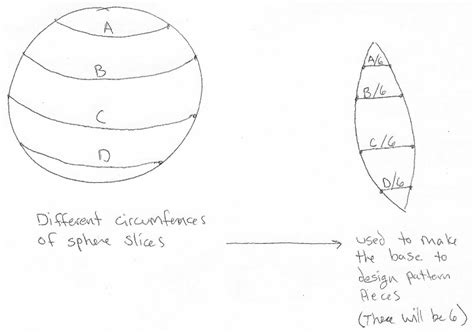 A
B
C
D
A/6
B/6
C/6
D/6
Different circumfences
of sphere slices
used to make
the base to
design pattern
pieces
(There will be 6)